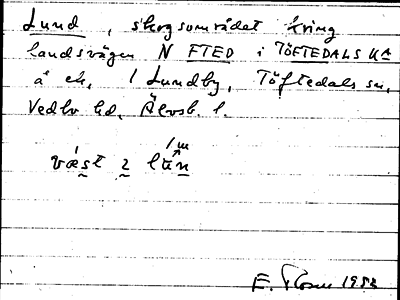 Lund, skogsområdet kring
landsvägen N FTED i TÖFTEDALS KA
å ek, 1 Lundby, Töftedals sn,
Vedbo hd, Älvsb. l.
väst 2 län
1m
E. 1982